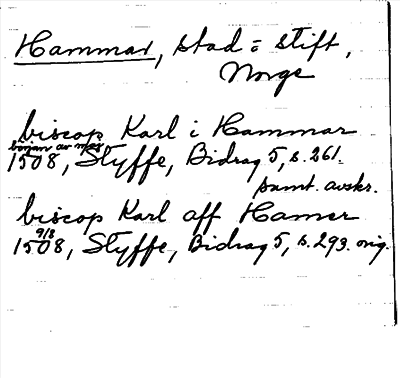 Hammar, stad = stift,
Norge
biscop Karl i Hammar
början av mars
1508, Styffe, Bidrag 5, s. 261.
samt. avskr.
biscop Karl aff Hamer
9/8
1508, Styffe, Bidrag 5, s. 293. orig.